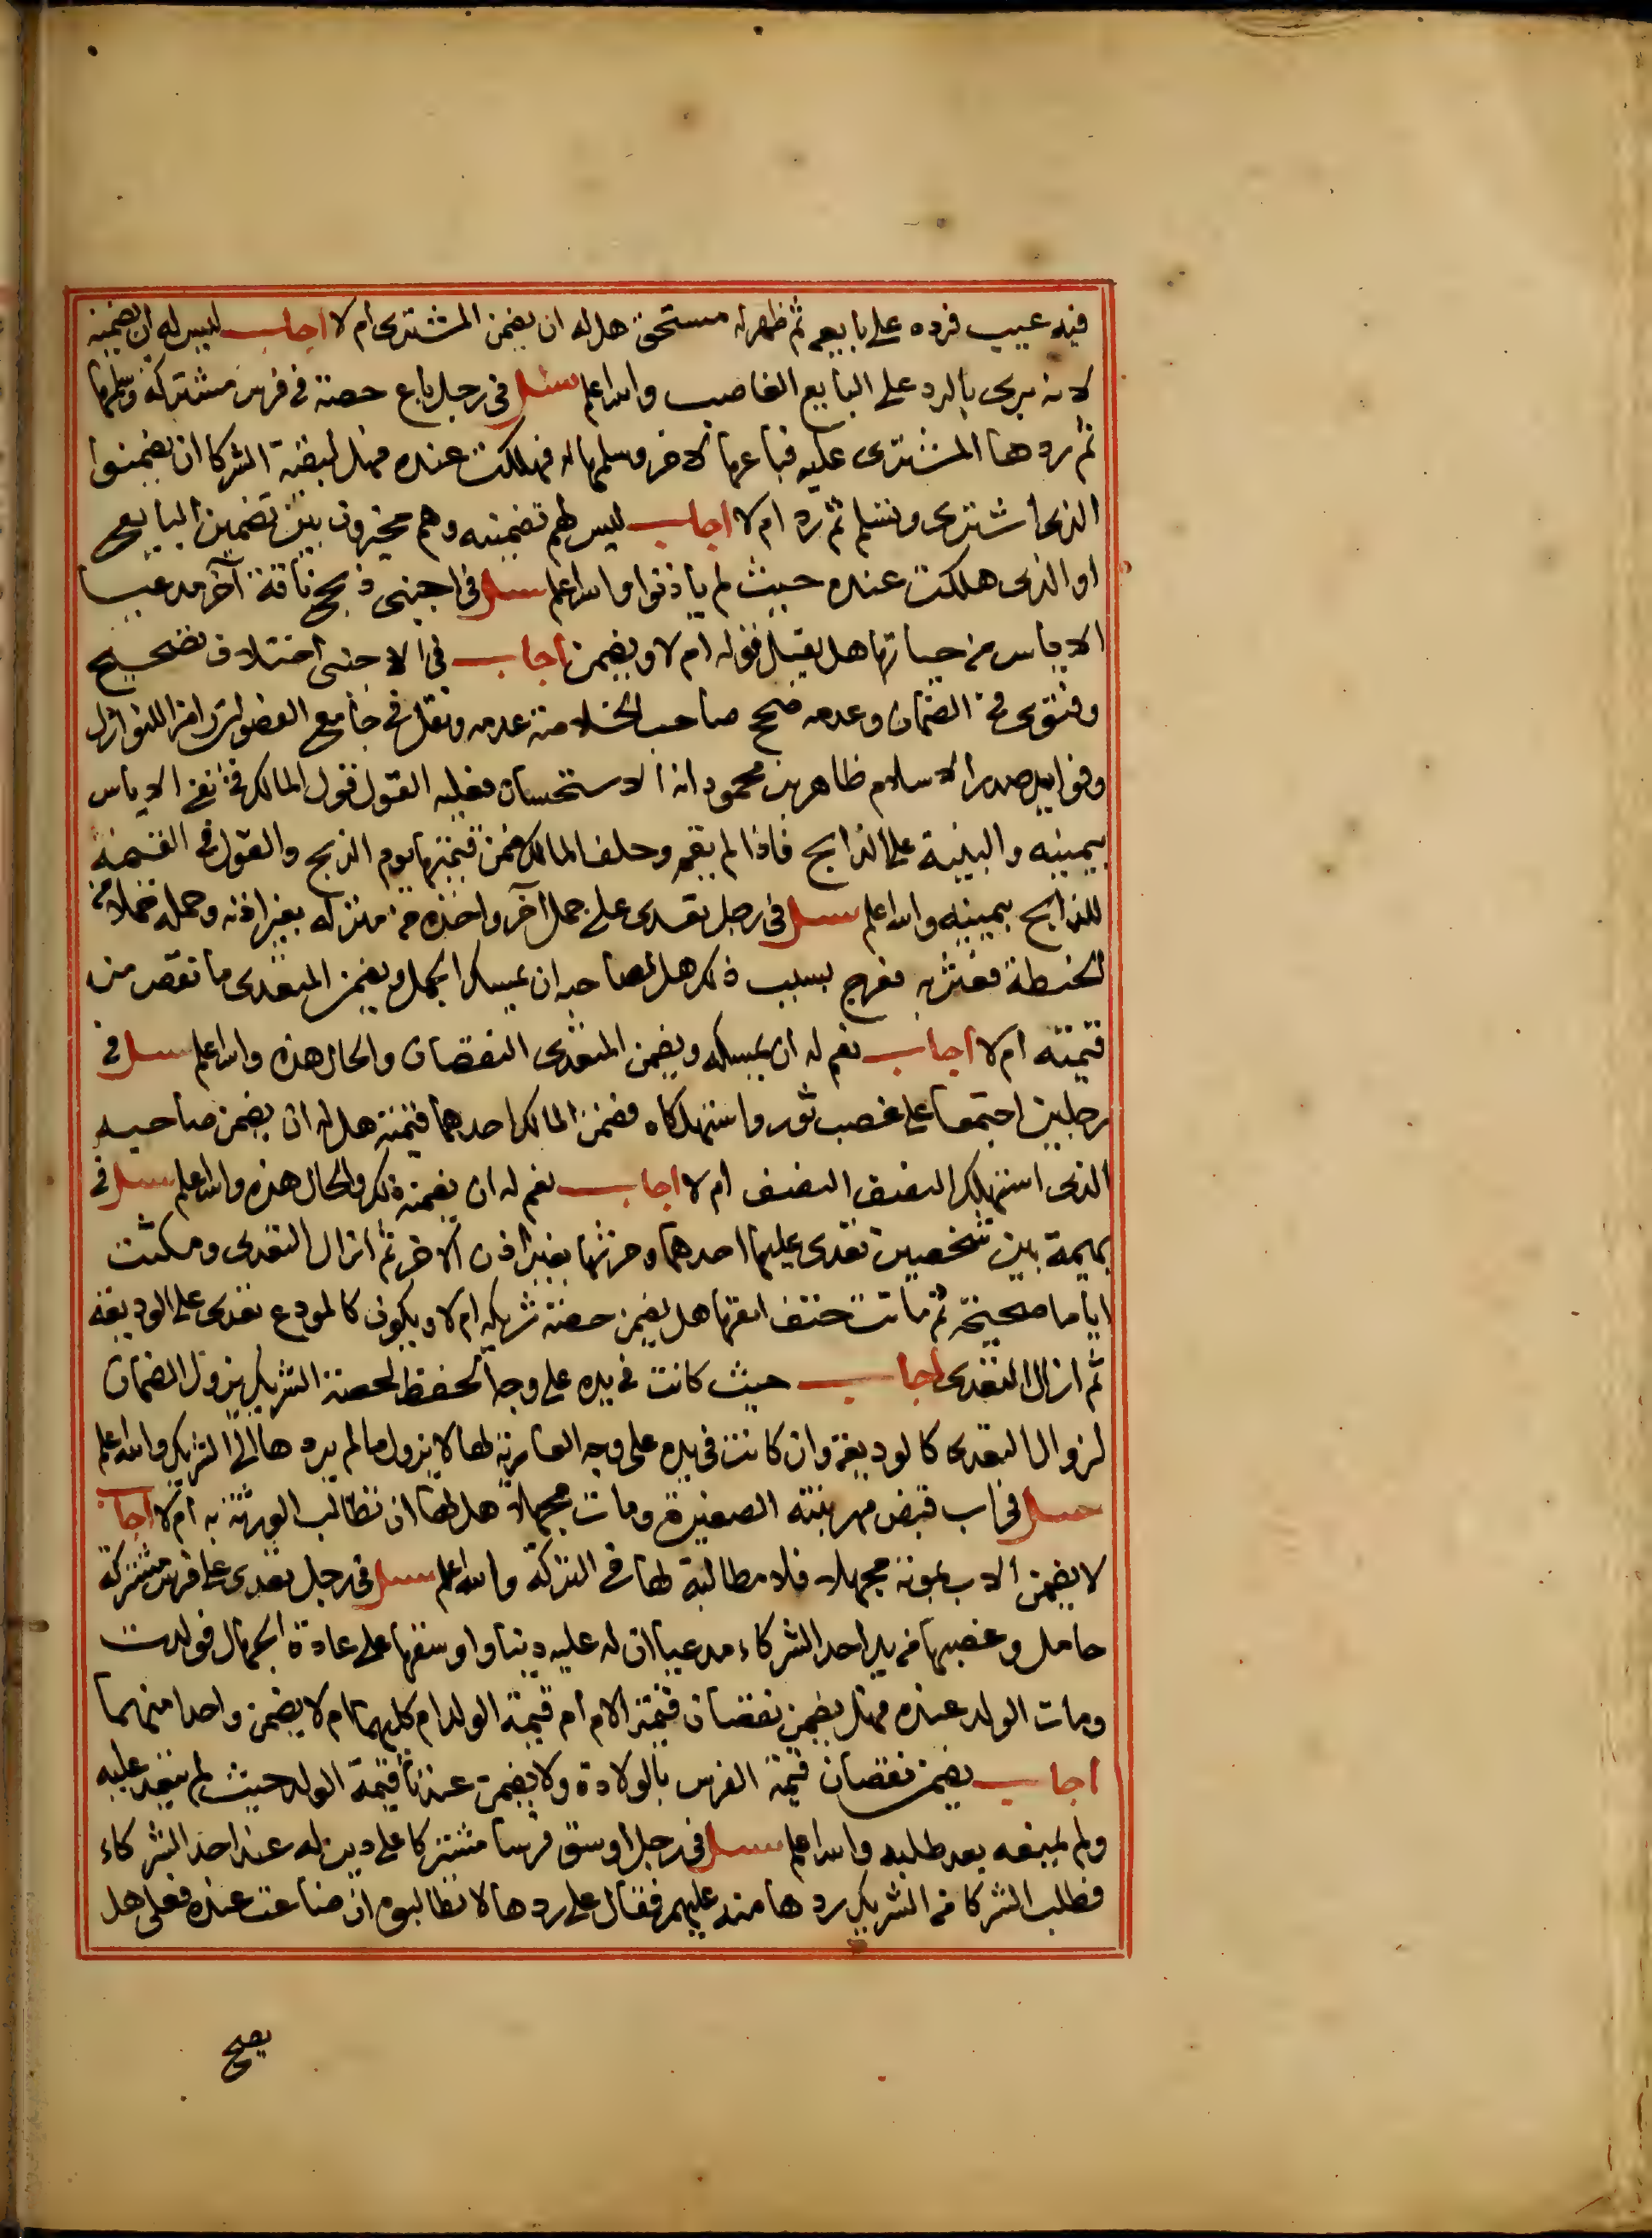 فيه عيب فرده على بايعه ثم ظهر له مستحق هل له ان يضمن المشترى ام لا اجاب ليس له ان يضمنه
لانه برى بالرد على البايع الغاصب والله اعلم سئل فى رجل باع حصته فى فرس مشتركة وسلمها
ثم ردها المشترى عليه فباعها لاخر وسلمها له فهلكت عنده فهل لبقية الشركا ان يضمنوا
الذى اشترى وتسلم ثم رد ام لا اجاب ليس لهم تضمينه وهم مخيرون بين تضمين البايع
او الذى هلكت عنده حيث لم ياذنوا والله اعلم سئل فى اجنبى ذبح ناقة آخر مدعيا
الاياس من حياتها هل يقبل قوله ام لا ويضمن اجاب فى الاجنبى اختلاف تصحيح
وفتوى فى الضمان وعدمه صحح صاحب الخلاصة عدمه ونقل فى جامع الفصولين رامزا للنوازل
وفوايد صدر الاسلام طاهر بن محمود انه الاستحسان فعليه القول قول المالك فى نفى الاياس
بيمينه والبينة على الذابح فاذا لم يقم وحلف المالك ضمن قيمتها يوم الذبح والقول فى القيمة
للذابح بيمينه والله اعلم سئل فى رجل تعدى على جمل آخر واخذه من منزله بغير اذنه وحمله حملا من
الحنطة فعثر به فعرج بسبب ذلك هل لصاحبه ان يمسك الجمل ويضمن المتعدى ما نقص من
قيمته ام لا اجاب نعم له ان يمسكه ويضمن المتعدى النقصان والحال هذه والله اعلم سئل فى
رجلين اجتمعا على غصب ثور واستهلكاه فضمن المالك احدهما قيمته هل له ان يضمن صاحبه
الذى استهلك النصف النصف ام لا اجاب نعم له ان يضمنه ذلك والحال هذه والله اعلم سئل فى
بهيمة بين شخصين تعدى عليها احدهما وحرثها بغير اذن الاخر ثم ازال التعدى ومكثت
اياما صحيحة ثم ماتت حتف انفها هل يضمن حصة شريكه ام لا ويكون كالمودع تعدى على الوديعة
ثم ازال التعدى اجاب حيث كانت فى يده على وجه الحفظ لحصة الشريك يزول الضمان
لزوال التعدى كالوديعة وان كانت فى يده على وجه العارية لها لا يزول ما لم يردها الى الشريك والله اعلم
سئل فى اب قبض مهر بنته الصغيرة ومات مجهلا هل لها ان تطالب الورثة به ام لا اجاب
لا يضمن الاب بموته مجهلا فلا مطالبة لها فى التركة والله اعلم سئل فى رجل تعدى على فرس مشتركة
حامل وغصبها من يد احد الشركاء مدعيا ان له عليه دينا واوسقها على عادة الجهال فولدت
ومات الولد عنده فهل يضمن نقصان قيمة الام ام قيمة الولد ام كليهما ام لا يضمن واحدا منهما
اجاب يضمن نقصان قيمة الفرس بالولادة ولا يضمن عندنا قيمة الولد حيث لم يتعد عليه
ولم يمنعه بعد طلبه والله اعلم سئل فى رجل اوسق فرسا مشتركا على دين له عند احد الشركاء
فطلب الشركا من الشريك ردها منه عليهم فقال على ردها لا تطالبوه ان ضاعت عنده فعلى هل
يصح